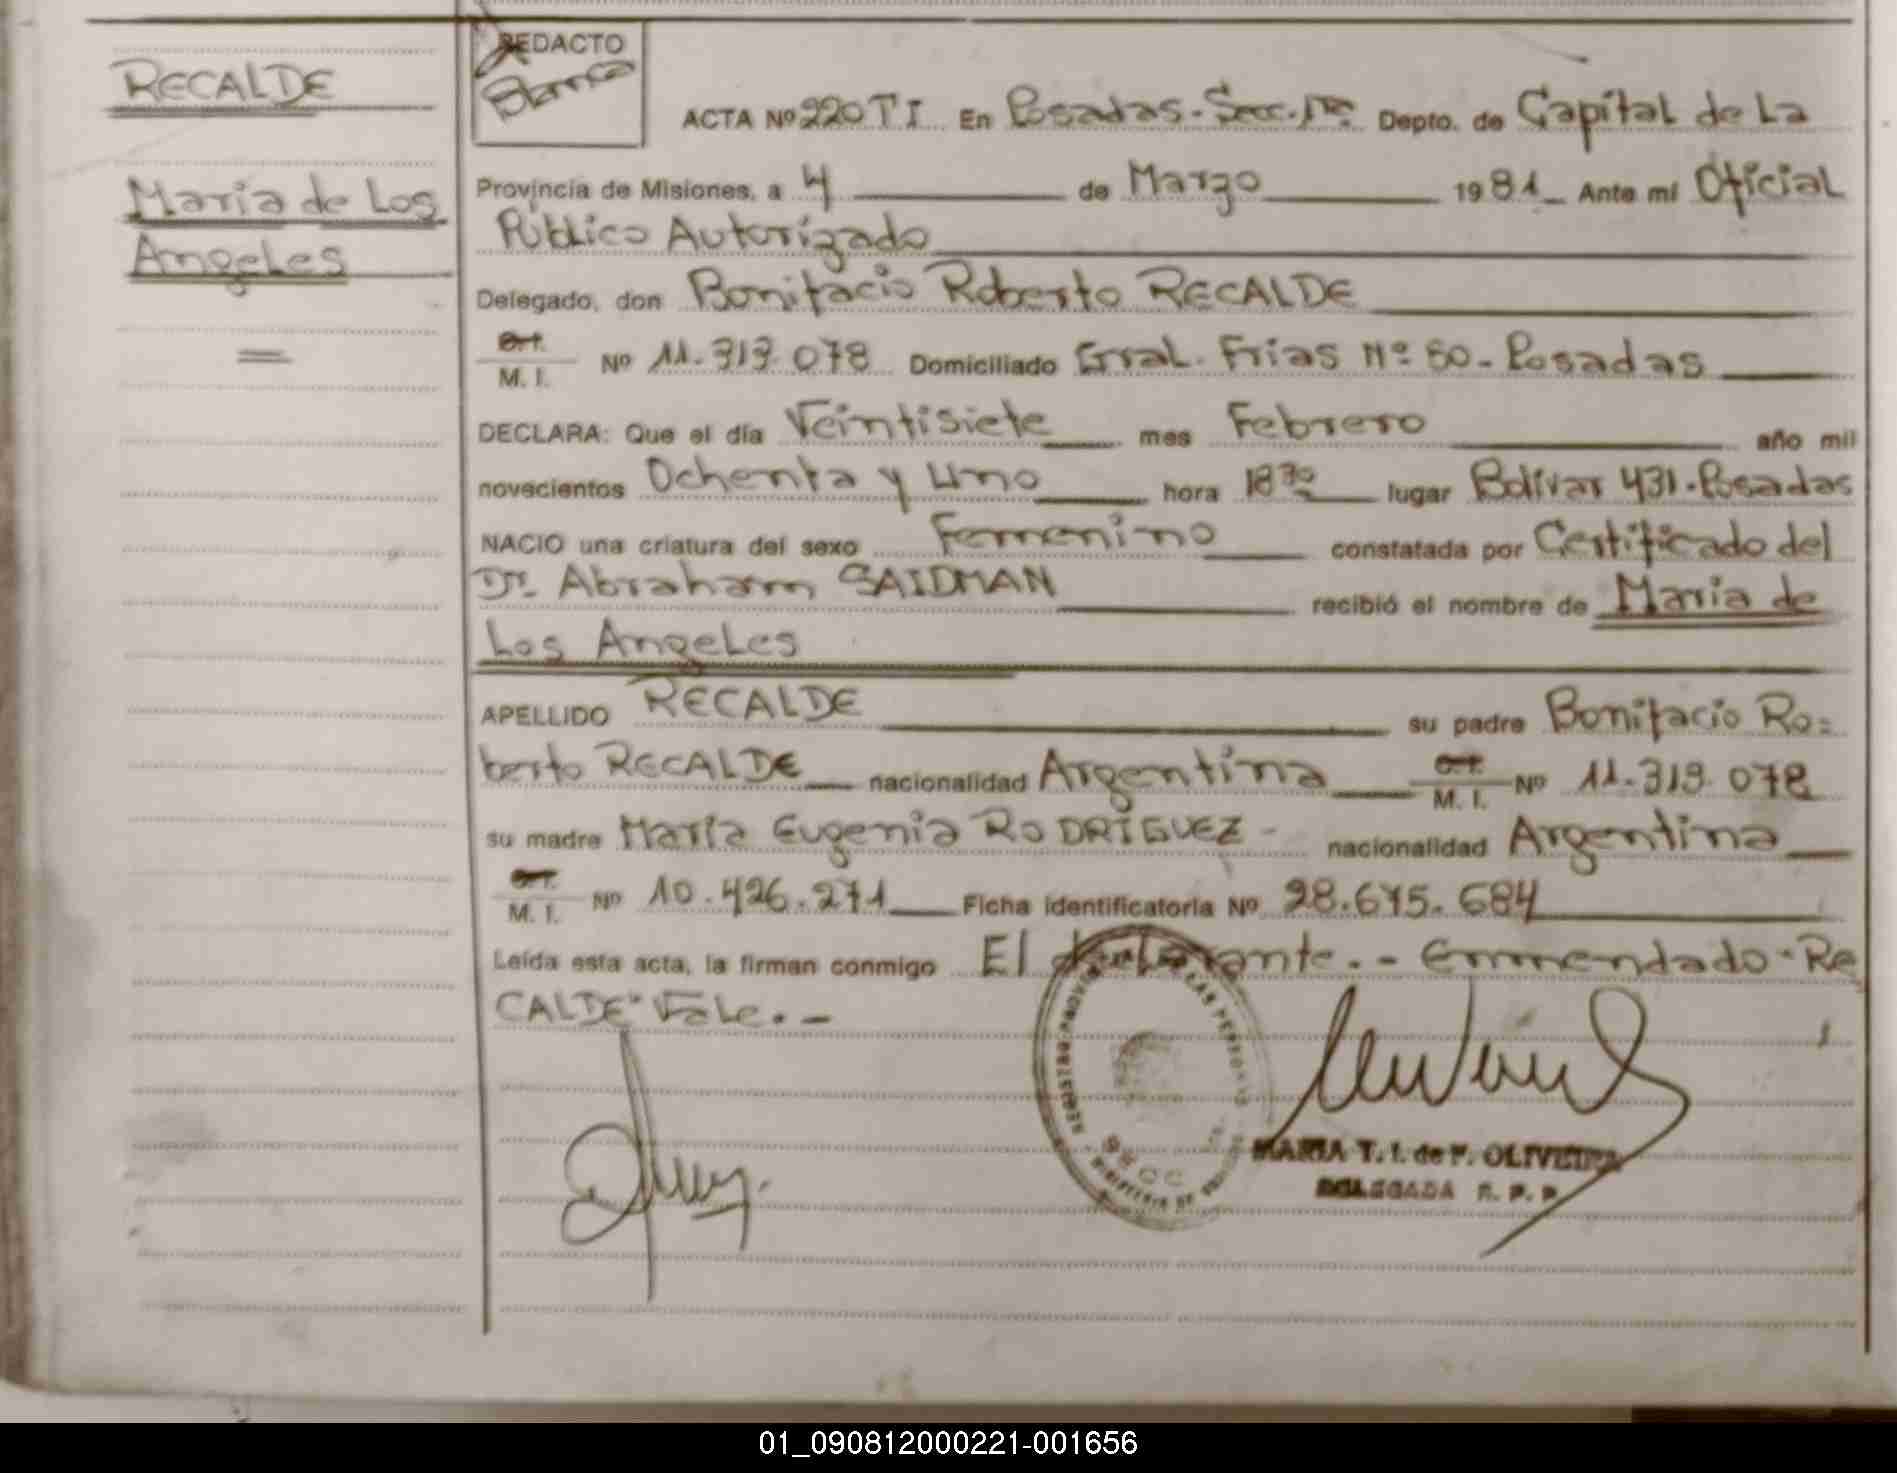 RECALDE
Maria de Los
Angeles
REDACTO
ACTA Nº 220 TI En Posadas-Secc. 1ra Depto. de Capital de La
Provincia de Misiones, a 4 de Marzo 1981 Ante mí Oficial
Público Autorizado
Delegado, don Bonifacio Roberto RECALDE
M. I. Nº 11.319.078 Domiciliado Gral. Frias Nº 50-Posadas
DECLARA: Que el día Veintisiete mes Febrero año mil
novecientos Ochenta y Uno hora 18 30 lugar Bolívar 431-Posadas
NACIO una criatura del sexo Femenino constatada por Certificado del
Dr. Abraham SAIDMAN recibió el nombre de Maria de
Los Angeles
APELLIDO RECALDE su padre Bonifacio Ro=
berto RECALDE nacionalidad Argentina M. I. Nº 11.319.078
su madre María Eugenia RODRIGUEZ - nacionalidad Argentina
M. I. Nº 10.426.271 Ficha identificatoria Nº 28.675.684
Leída esta acta, la firman conmigo El declarante.- Enmendado-Re
CALDE" Vale.-
MARIA T. I. de F. OLIVEIRA
DELEGADA R. P. P.
01_090812000221-001656